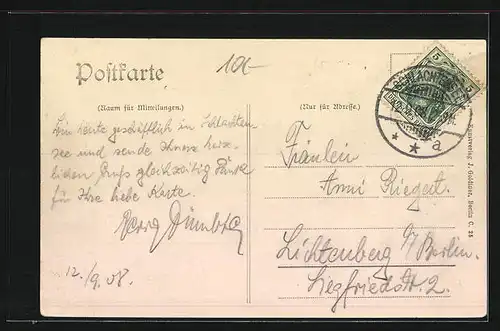 10.-
Postkarte
(Raum für Mitteilungen.)
(Nur für Adresse.)
SCHLACHTENSEE
a
5
5
Bin heute geschäftlich in Schlachten-
see und sende Ihnen herz-
lichen Gruß gleichzeitig Dank
für Ihre liebe Karte.
Georg
12./9. 08.
Fräulein
Anni Riegert.
Lichtenberg b/ Berlin.
Siegfriedstr. 2.
Kunstverlag J. Goldiner, Berlin C. 25